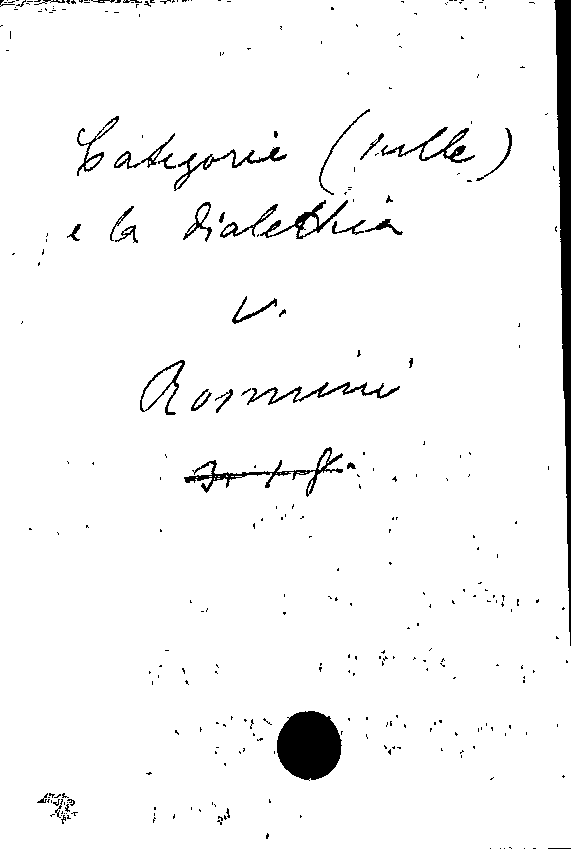 Categorie (sulle)
e la dialettica
v.
Rosmini